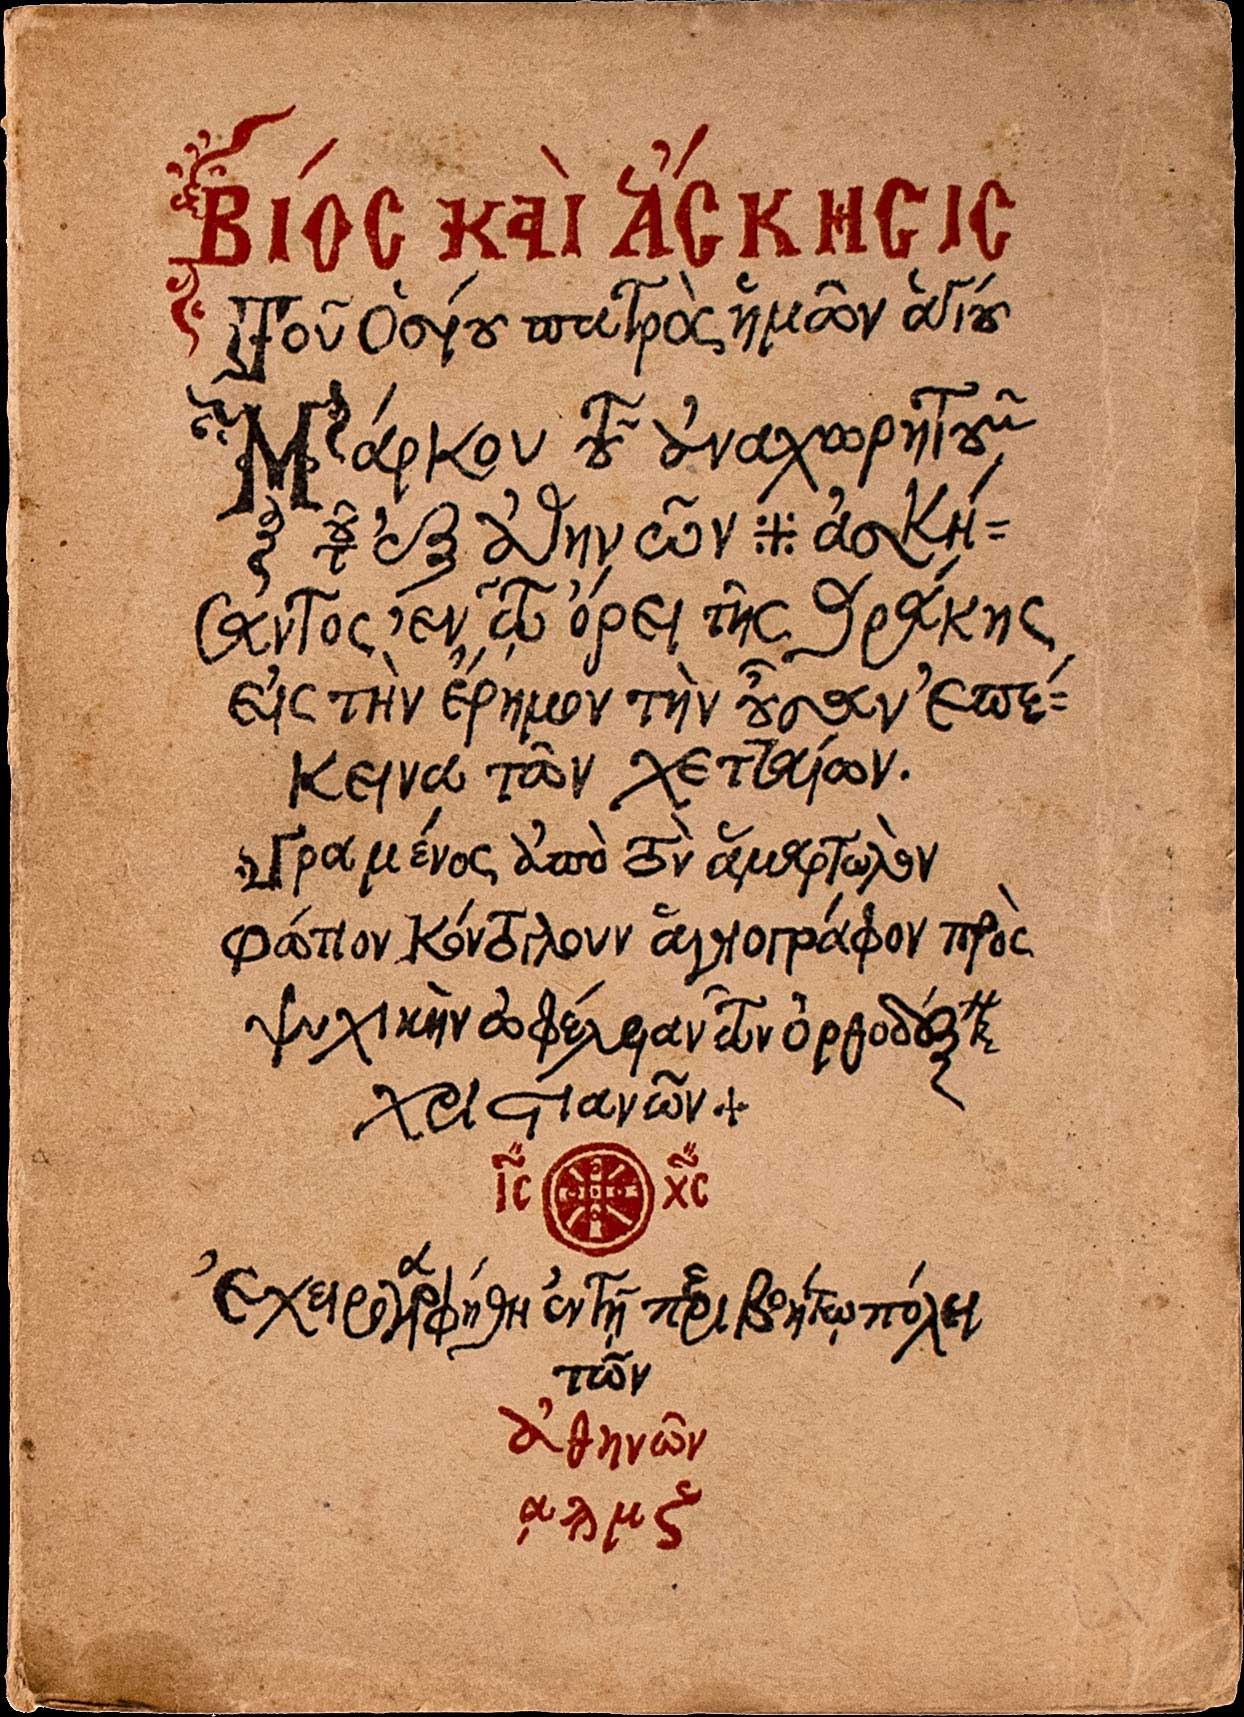 ΒΙΟΣ ΚΑΙ ἌΣΚΗΣΙΣ
Τοῦ Ὁσίου πατρὸς ἡμῶν ἁγίου
Μάρκου τοῦ ἀναχωρητοῦ
τοῦ ἐξ Ἀθηνῶν ἀσκή=
σαντος ἐν τῷ ὄρει τῆς Θράκης
εἰς τὴν ἔρημον τὴν οὖσαν ἐπέ=
κεινα τῶν Χετταίων.
Γραμένος ἀπὸ τὸν ἁμαρτωλὸν
Φώτιον Κόντογλουν ἁγιογράφον πρὸς
ψυχικὴν ὠφέλειαν τῶν ὀρθοδόξων
χριστιανῶν +
ΙΣ ΧΣ
Ἐχειρογραφήθη ἐν τῇ περιβοήτῳ πόλει
τῶν
Ἀθηνῶν
͵αϡμζ